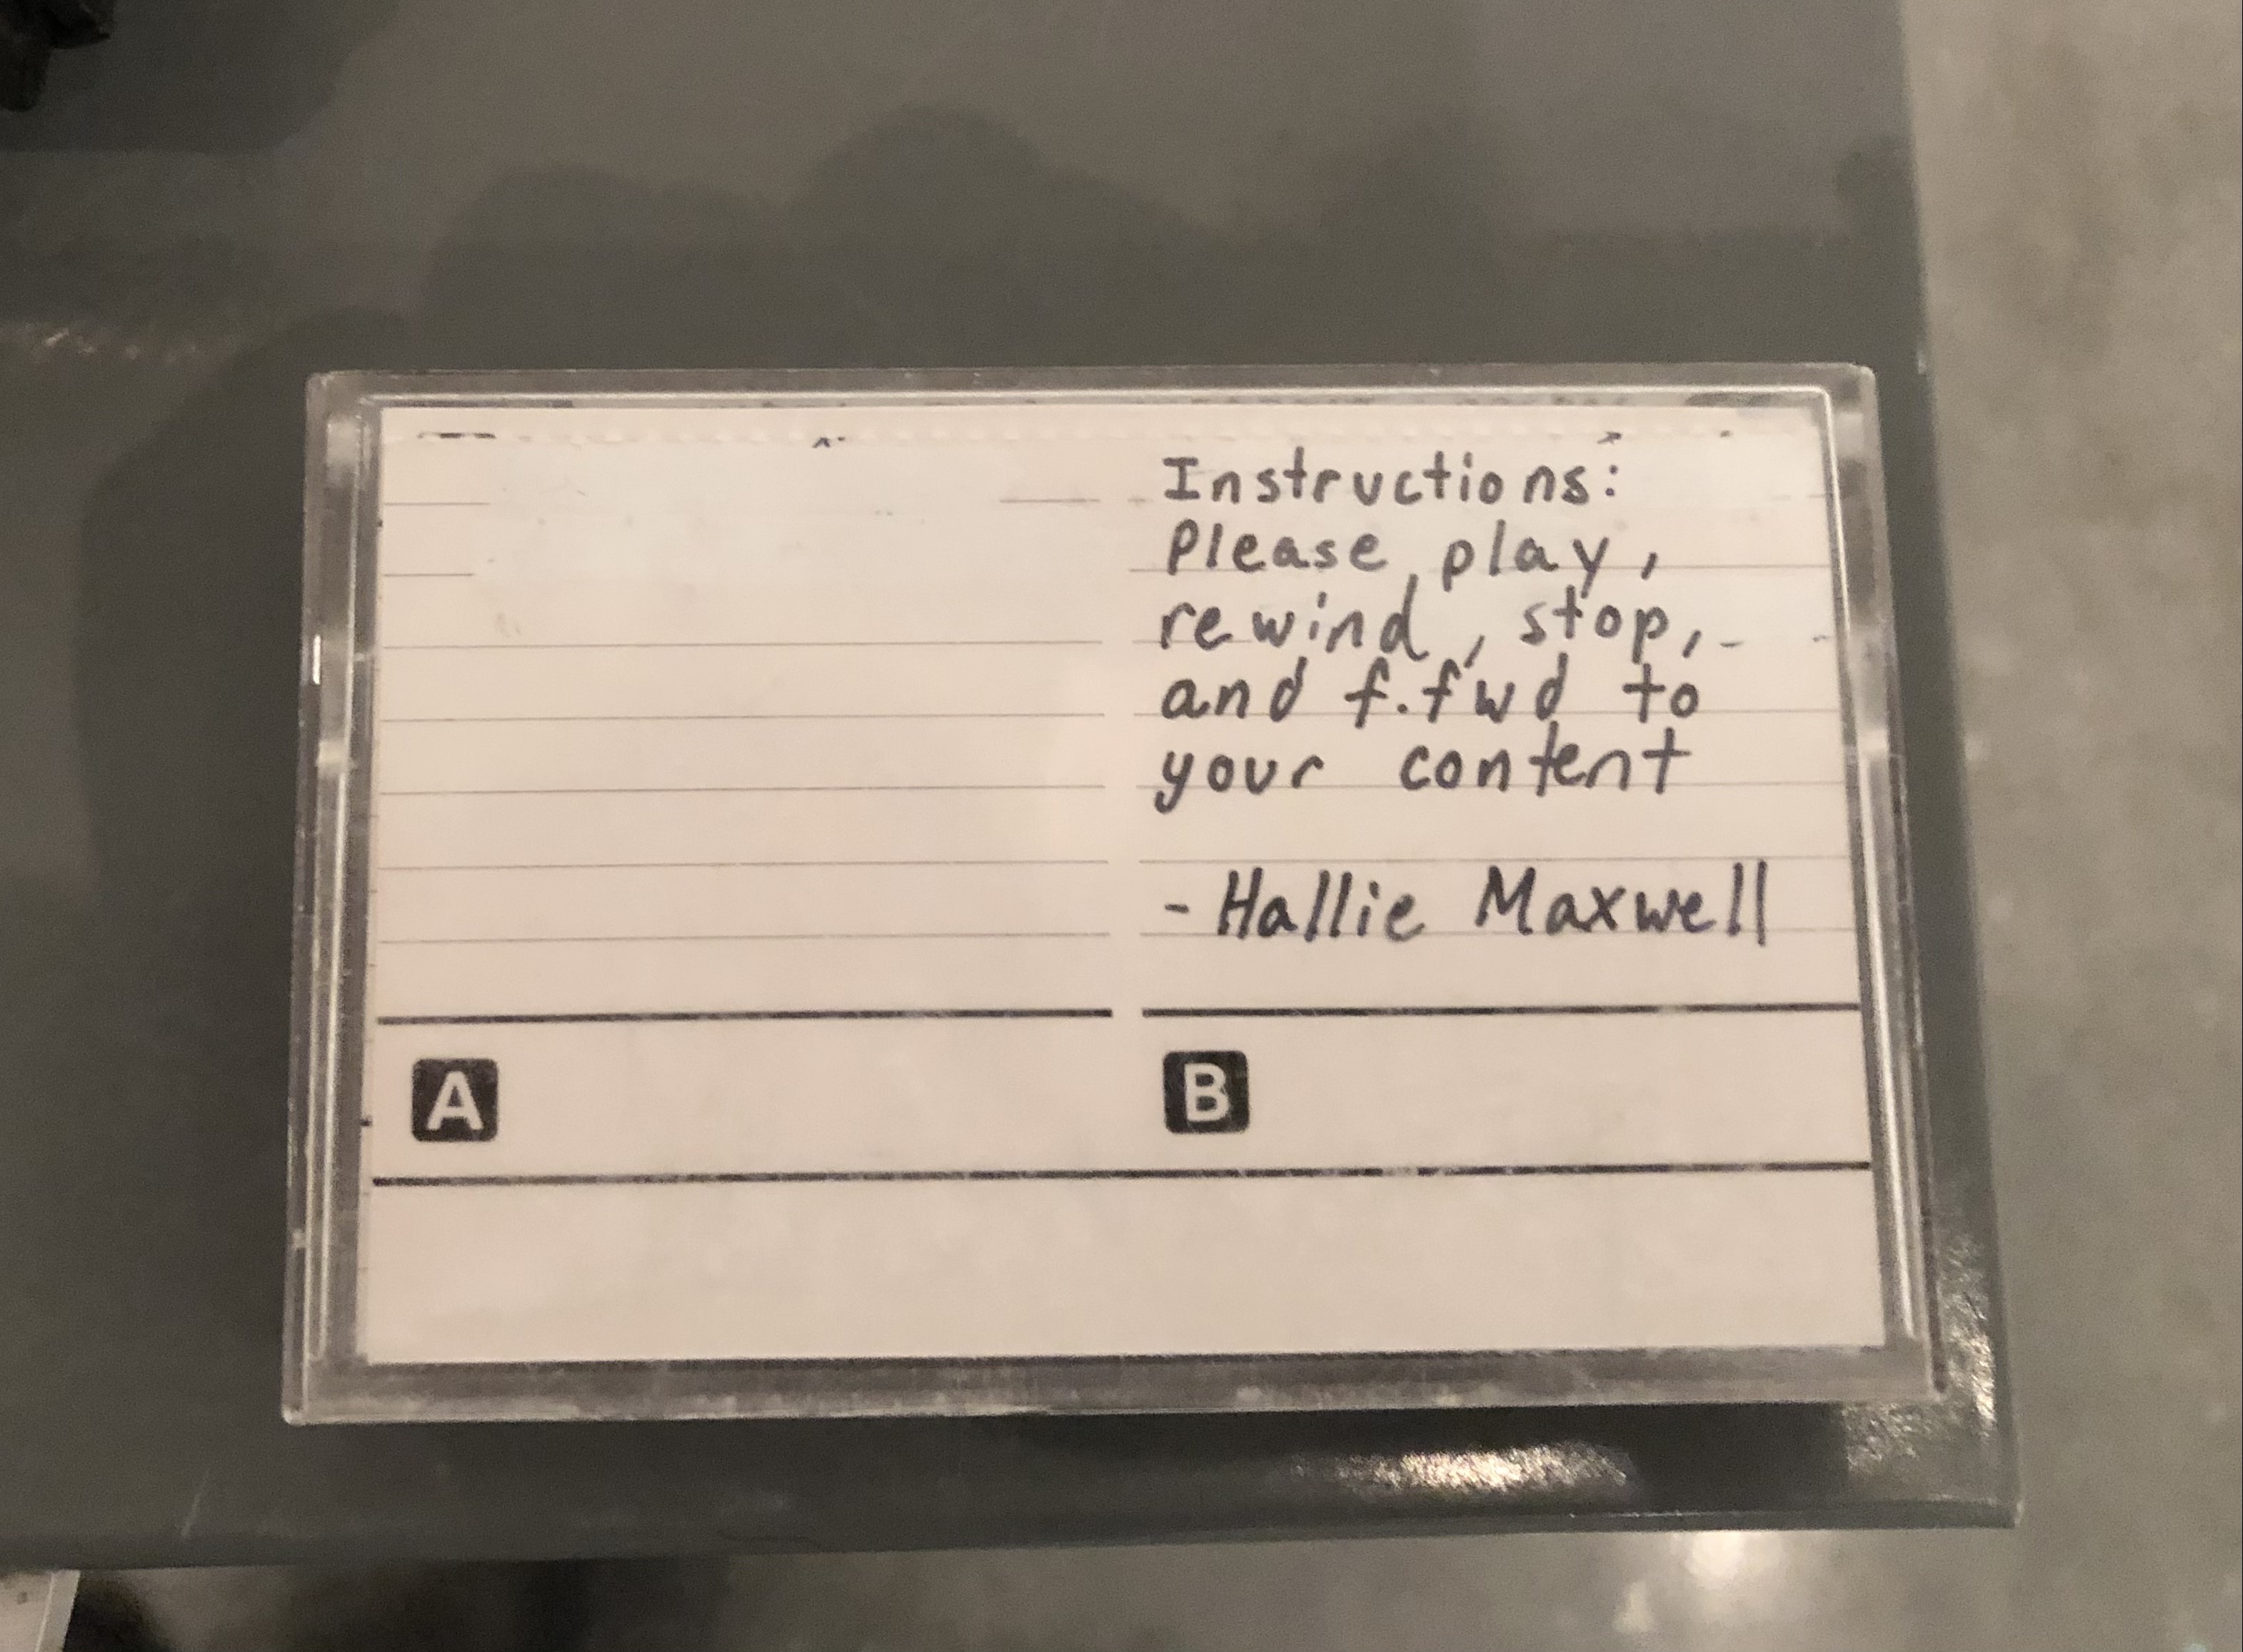 Instructions:
Please play,
rewind, stop,
and f.fwd to
your content
- Hallie Maxwell
A
B